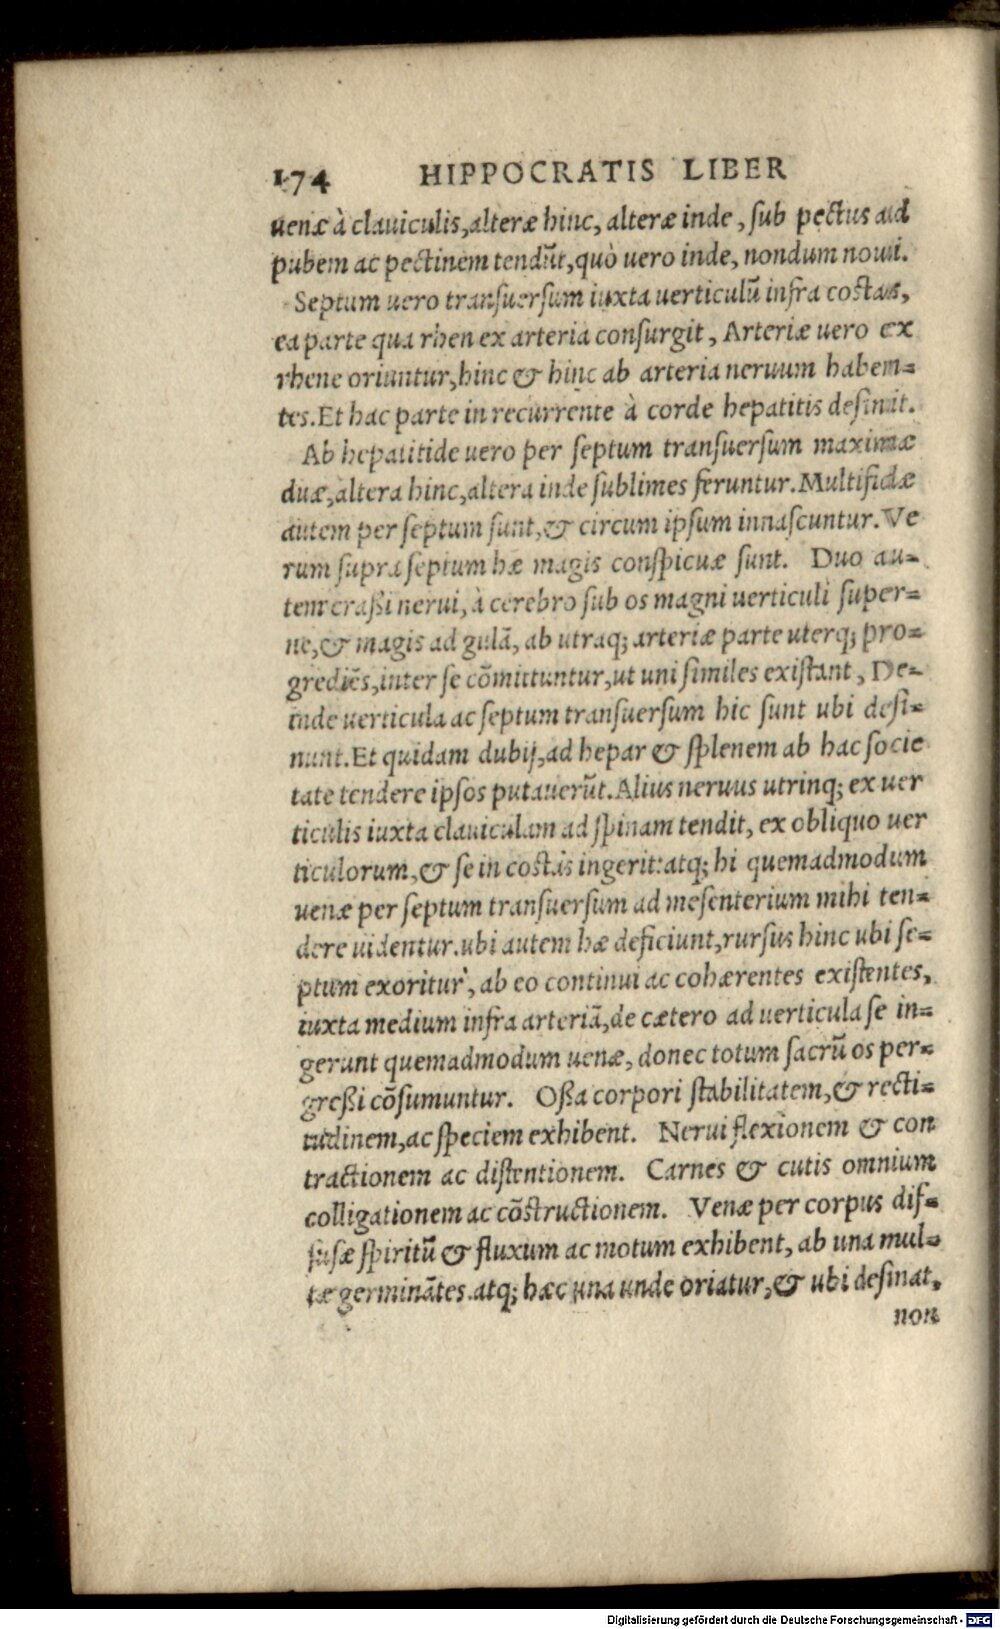 174 HIPPOCRATIS LIBER
uenæ à clauiculis, alteræ hinc, alteræ inde, sub pectus ad
pubem ac pectinem tendũt, quò uero inde, nondum noui.
Septum uero transuersum iuxta uerticulũ infra costas,
ea parte qua rhen ex arteria consurgit, Arteriæ uero ex
rhene oriuntur, hinc & hinc ab arteria neruum haben=
tes. Et hac parte in recurrente à corde hepatitis desinit.
Ab hepatitide uero per septum transuersum maximæ
duæ, altera hinc, altera inde sublimes feruntur. Multifidæ
autem per septum sunt, & circum ipsum innascuntur. Ve
rum supra septum hæ magis conspicuæ sunt. Duo au=
tem crassi nerui, à cerebro sub os magni uerticuli super=
ne, & magis ad gulã, ab utraq; arteriæ parte uterq; pro=
grediẽs, inter se cõmittuntur, ut uni similes existant, De=
inde uerticula ac septum transuersum hic sunt ubi desi=
nunt. Et quidam dubij, ad hepar & splenem ab hac socie
tate tendere ipsos putauerũt. Alius neruus utrinq; ex uer
ticulis iuxta clauiculam ad spinam tendit, ex obliquo uer
ticulorum, & se in costas ingerit: atq; hi quemadmodum
uenæ per septum transuersum ad mesenterium mihi ten=
dere uidentur. ubi autem hæ deficiunt, rursus hinc ubi se=
ptum exoritur, ab eo continui ac cohærentes existentes,
iuxta medium infra arteriã, de cætero ad uerticula se in=
gerunt quemadmodum uenæ, donec totum sacrũ os per=
gressi cõsumuntur. Ossa corpori stabilitatem, & recti=
tudinem, ac speciem exhibent. Nerui flexionem & con
tractionem ac distentionem. Carnes & cutis omnium
colligationem ac cõstructionem. Venæ per corpus dif=
fusæ spiritũ & fluxum ac motum exhibent, ab una mul=
tæ germinãtes. atq; hæc una unde oriatur, & ubi desinat,
non
Digitalisierung gefördert durch die Deutsche Forschungsgemeinschaft - DFG